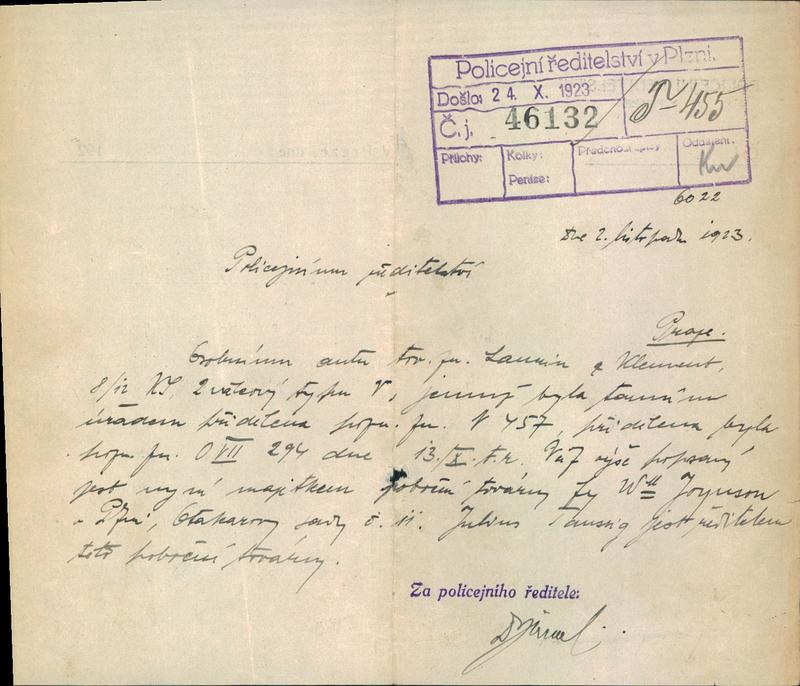 Policejní ředitelství v Plzni.
Došlo: 24. X. 1923
N-455
Č. j. 46132
Přílohy:
Kolky:
Peníze:
Předchozí spisy
Oddělení:
6022
Dne 2. listopadu 1923.
Policejnímu ředitelství
Praze.
Osobnímu autu tov. zn. Laurin & Klement,
8/12 KS, 2 válcový typu V, jemuž byla tamním
úřadem přidělena popn. zn. N 457, přidělena byla
popn. zn. O VII 294 dne 13./X. t. r. Vůz výše popsaný
jest nyní majetkem pobočné továrny fy Wm Joynson
v Plzni, Otakarovy sady č. 11. Julius Taussig jest ředitelem
této pobočné továrny.
Za policejního ředitele: